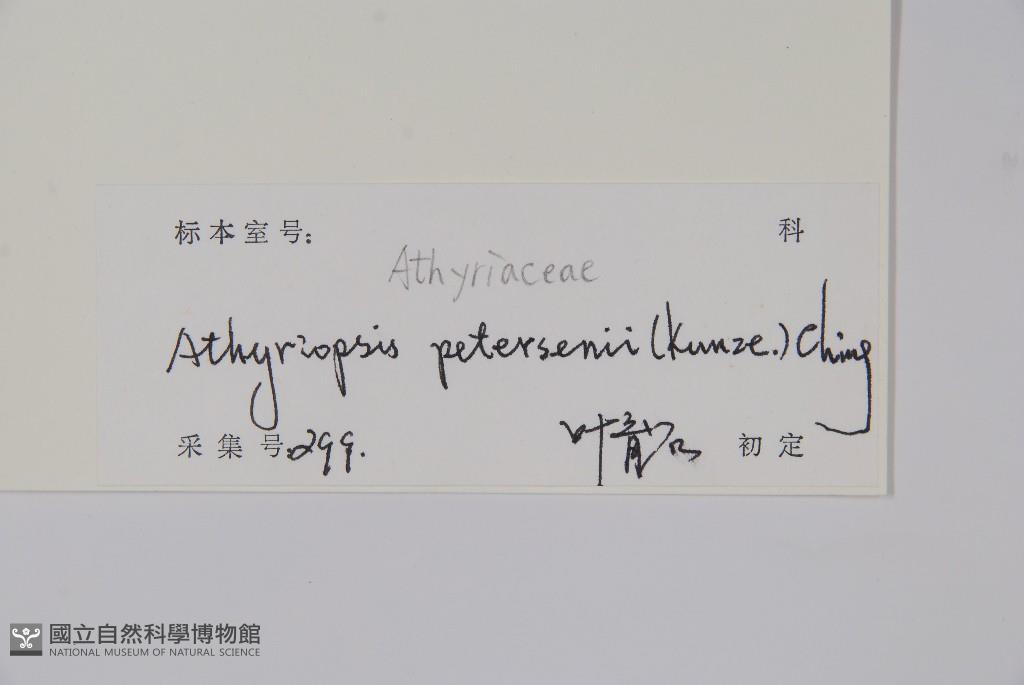 标本室号: 科
Athyriaceae
Athyriopsis petersenii (Kunze.) Ching
采集号 299. 叶 初定
國立自然科學博物館
NATIONAL MUSEUM OF NATURAL SCIENCE